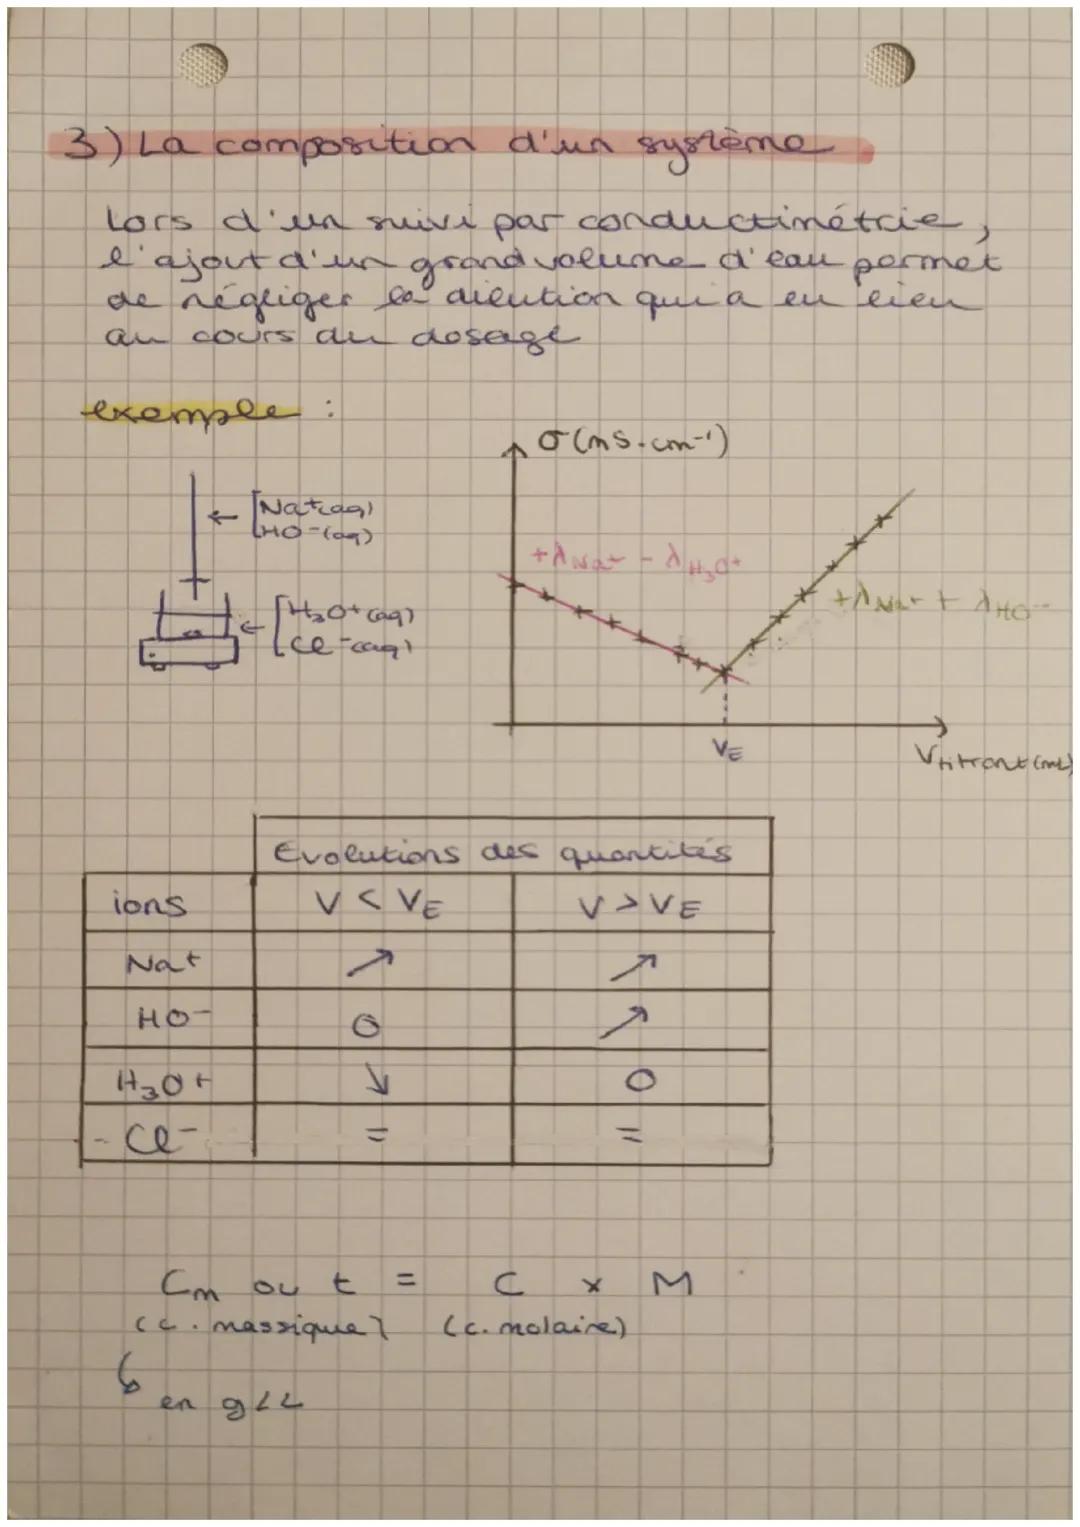 3) La composition d'un système
Lors d'un suivi par conductimétrie,
l'ajout d'un grand volume d'eau permet
de négliger la dilution qui a eu lieu
au cours du dosage
exemple :
σ (mS.cm⁻¹)
Na⁺(aq)
HO⁻(aq)
H₃O⁺(aq)
Cl⁻(aq)
+λNa⁺ - λH₃O⁺
+λNa⁺ + λHO⁻
VE
Vtitrant (mL)
Evolutions des quantités
ions V < VE V > VE
Na⁺ ↗ ↗
HO⁻ 0 ↗
H₃O⁺ ↘ 0
- Cl⁻ = =
Cm ou t = C × M
(c. massique) (c. molaire)
↳ en g/L